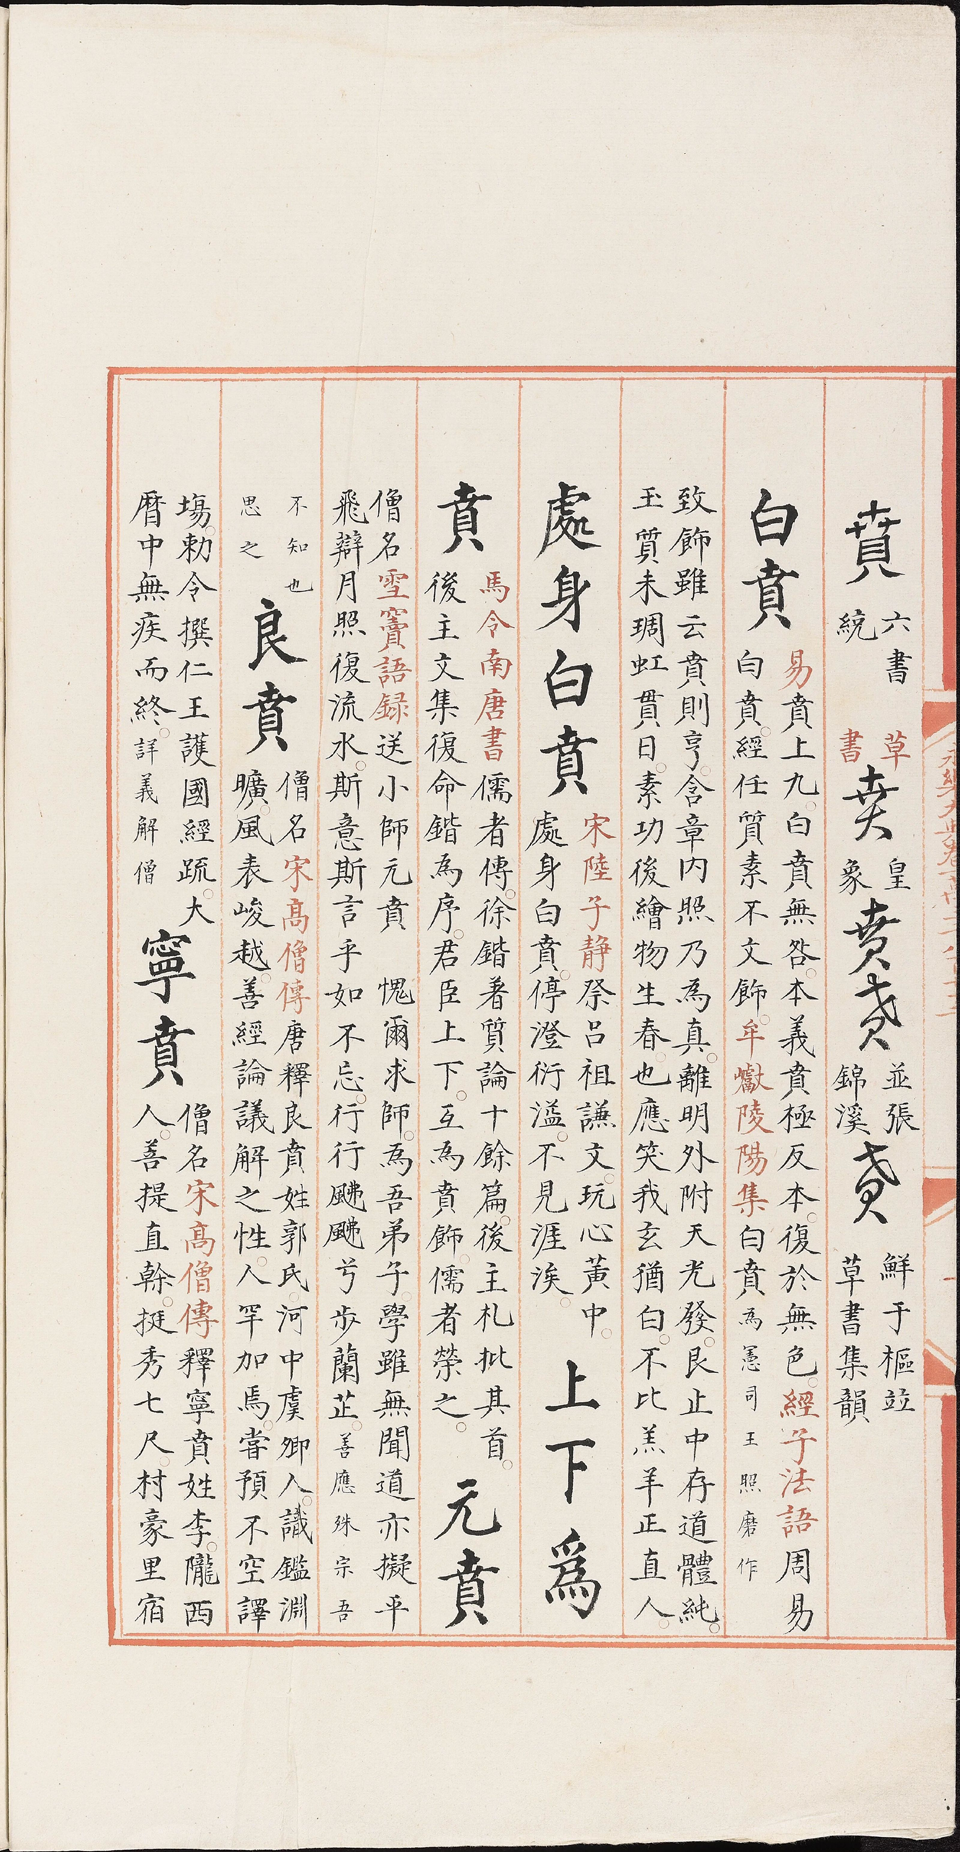 賁
六書
統
草
書
賁
皇
象
賁賁
並張
錦溪
賁
鮮于樞並
草書集韻
白賁
易賁上九。白賁無咎。本義賁極反本。復於無色。經子法語周易
白賁。經任質素不文飾。牟巘陵陽集白賁為憲司王照磨作
致飾雖云賁則亨。含章内照乃為真。離明外附天光發。艮止中存道體純。
玉質未琱虹貫日。素功後繪物生春。也應笑我玄猶白。不比羔羊正直人。
處身白賁
宋陸子静祭呂祖謙文。玩心黄中。
處身白賁。停澄衍溢。不見涯涘。
上下為
賁
馬令南唐書儒者傳。徐鍇著質論十餘篇。後主札批其首。
後主文集復命鍇為序。君臣上下。互為賁飾。儒者榮之。
元賁
僧名雪竇語録送小師元賁 愧爾求師。為吾弟子。學雖無聞道亦擬平
飛辯月照復流水。斯意斯言乎如不忌。行行颷颷兮步蘭芷。善應殊宗吾
不知也
思之
良賁
僧名宋髙僧傳唐釋良賁姓郭氏。河中虞鄉人。識鑑淵
曠。風表峻越。善經論議解之性。人罕加焉。嘗預不空譯
塲。勅令撰仁王護國經疏。大
曆中無疾而終。詳義解僧
寧賁
僧名宋髙僧傳釋寧賁姓李。隴西
人。善提直幹。挺秀七尺。村豪里宿